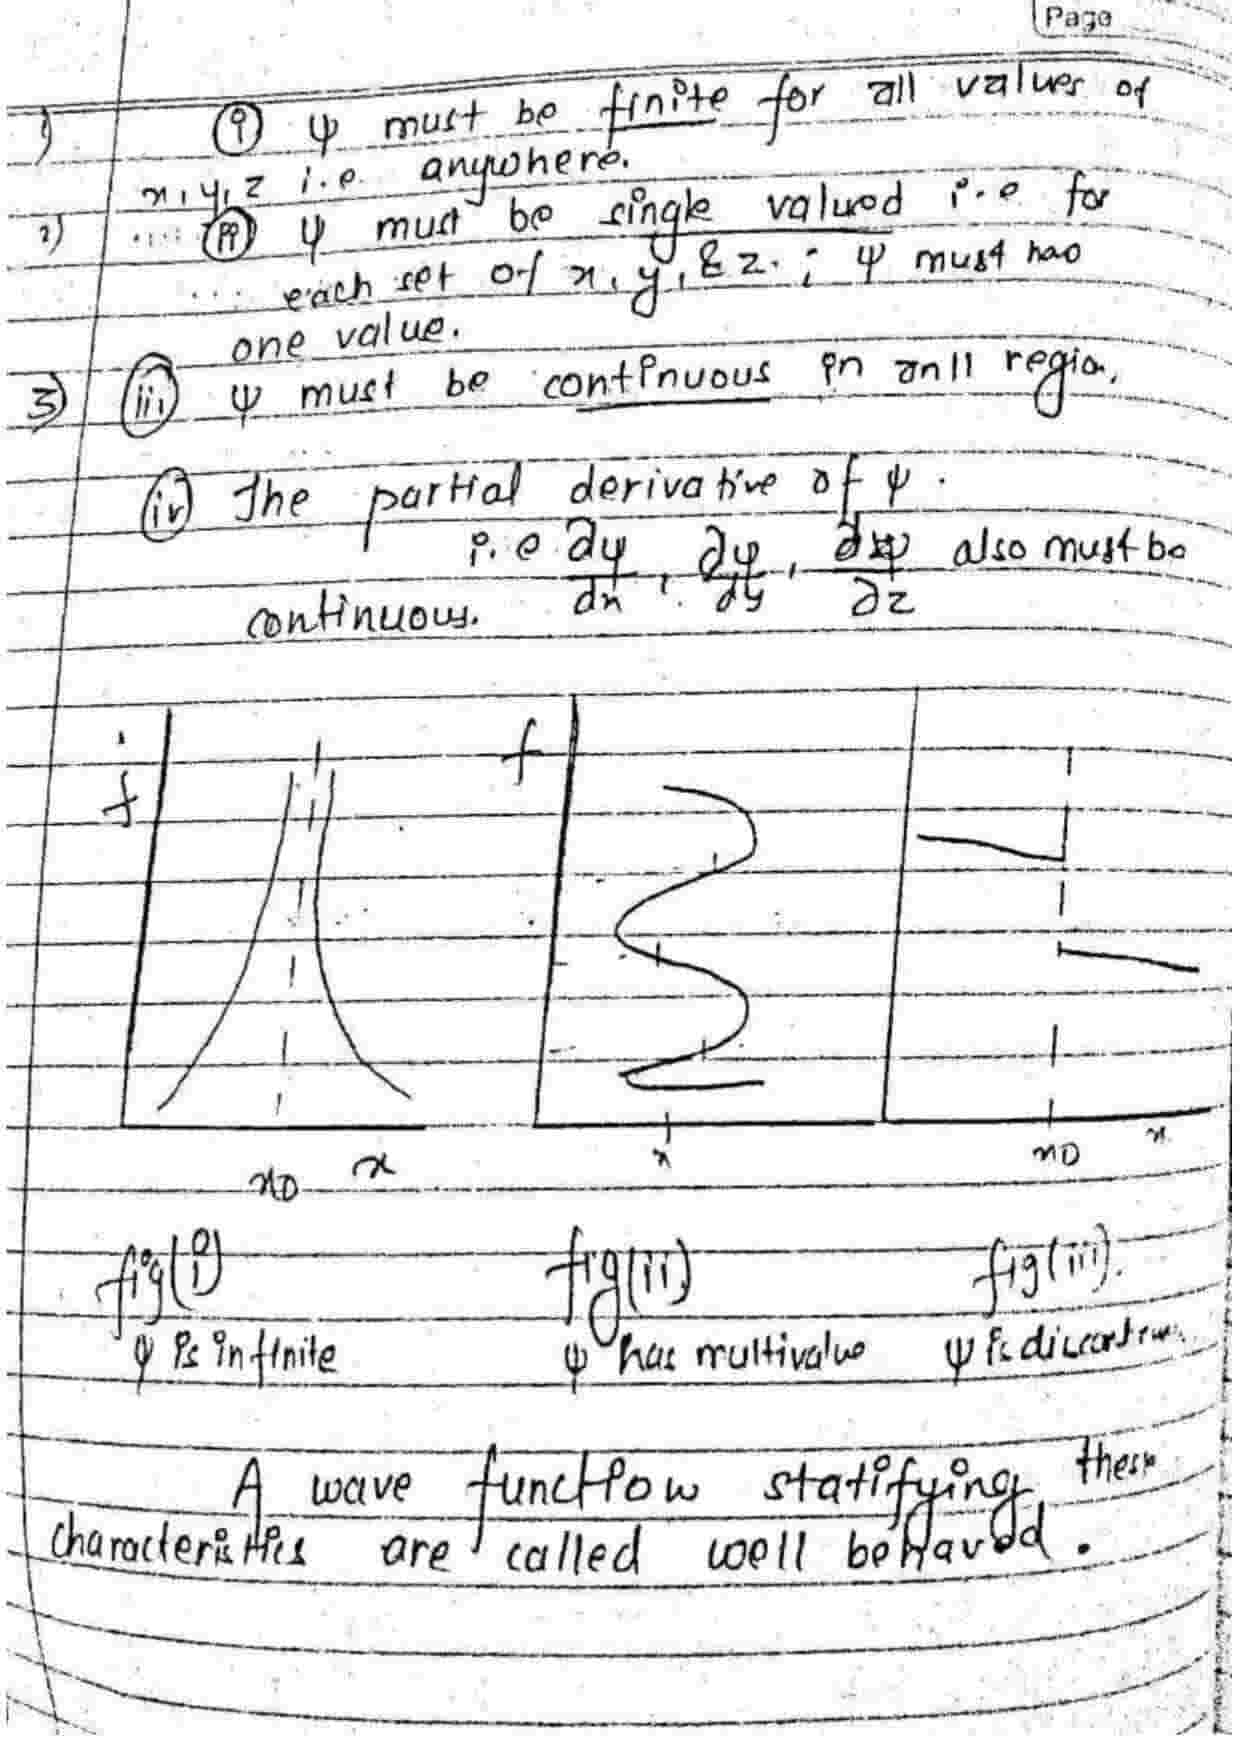 Page
1) (i) ψ must be finite for all values of
x, y, z i.e. anywhere.
2) .... (ii) ψ must be single valued i.e for
... each set of x, y, & z. ; ψ must has
one value.
3) (iii) ψ must be continuous in anll regio,
(iv) The partial derivative of ψ.
i.e ∂ψ/∂x, ∂ψ/∂y, ∂ψ/∂z also must be
continuous.
f f
x0 x x x0 x
fig(i) fig(ii) fig(iii).
ψ is infinite ψ has multivalue ψ is
A wave function statifying these
characteristics are called well behaved.